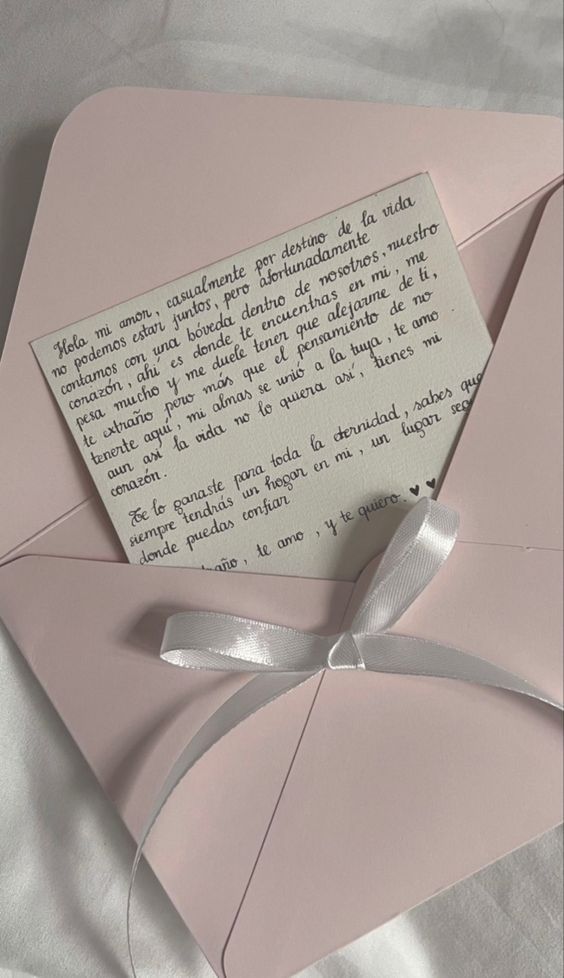 Hola mi amor, casualmente por destino de la vida
no podemos estar juntos, pero afortunadamente
contamos con una bóveda dentro de nosotros, nuestro
corazón, ahí es donde te encuentras en mi, me
pesa mucho y me duele tener que alejarme de ti,
te extraño pero más que el pensamiento de no
tenerte aquí, mi almas se unió a la tuya, te amo
aun así la vida no lo quiera así, tienes mi
corazón.
Te lo ganaste para toda la eternidad, sabes que
siempre tendrás un hogar en mi, un lugar
donde puedas confiar
te amo, y te quiero. ♥♥